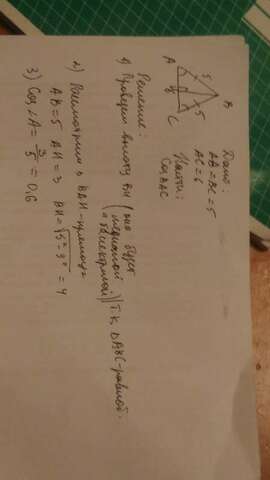 A
B
C
H
5
5
Дано:
AB=BC=5
AC=6
Найти:
Cos BAC
Решение:
1) Проведем высоту BH (она будет медианой и биссектрисой) т.к. △ABC-равноб.
2) Рассмотрим △ BAH-прямоуг
AB=5 AH=3 BH=√5²-3² = 4
3) Cos∠A= 3/5 = 0,6